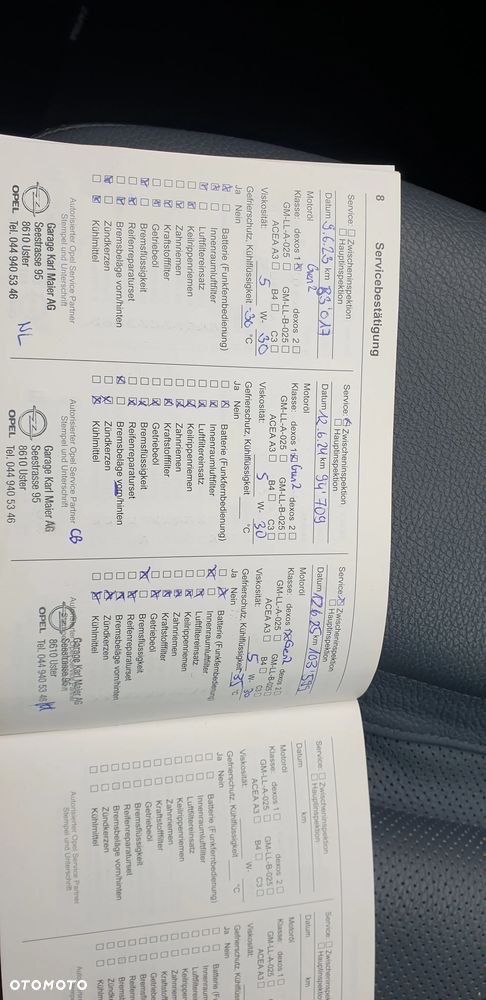 8 Servicebestätigung
Service: Zwischeninspektion
Hauptinspektion
Datum 9.6.23 km 83'017
Motoröl Gen2
Klasse: dexos 1 dexos 2
GM-LL-A-025 GM-LL-B-025
ACEA A3 B4 C3
Viskosität: 5 W- 30
Gefrierschutz, Kühlflüssigkeit -30 °C
Ja Nein
Batterie (Funkfernbedienung)
Innenraumluftfilter
Luftfiltereinsatz
Keilrippenriemen
Zahnriemen
Kraftstofffilter
Getriebeöl
Bremsflüssigkeit
Reifenreparaturset
Bremsbeläge vorn/hinten
Zündkerzen
Kühlmittel
Autorisierter Opel Service Partner
Stempel und Unterschrift
Garage Karl Maier AG
Seestrasse 95
8610 Uster
OPEL Tel. 044 940 53 46
NL
Service: Zwischeninspektion
Hauptinspektion
Datum 12.6.24 km 94'709
Motoröl
Klasse: dexos 1 Gen2 dexos 2
GM-LL-A-025 GM-LL-B-025
ACEA A3 B4 C3
Viskosität: 5 W- 30
Gefrierschutz, Kühlflüssigkeit °C
Ja Nein
Batterie (Funkfernbedienung)
Innenraumluftfilter
Luftfiltereinsatz
Keilrippenriemen
Zahnriemen
Kraftstofffilter
Getriebeöl
Bremsflüssigkeit
Reifenreparaturset
Bremsbeläge vorn/hinten
Zündkerzen
Kühlmittel
Autorisierter Opel Service Partner
Stempel und Unterschrift
CB
Garage Karl Maier AG
Seestrasse 95
8610 Uster
OPEL Tel. 044 940 53 46
Service: Zwischeninspektion
Hauptinspektion
Datum 12.6.25 km
Motoröl
Klasse: dexos 1 Gen2 dexos 2
GM-LL-A-025 GM-LL-B-025
ACEA A3 B4 C3
Viskosität: 5 W- 30
Gefrierschutz, Kühlflüssigkeit -35 °C
Ja Nein
Batterie (Funkfernbedienung)
Innenraumluftfilter
Luftfiltereinsatz
Keilrippenriemen
Zahnriemen
Kraftstofffilter
Getriebeöl
Bremsflüssigkeit
Reifenreparaturset
Bremsbeläge vorn/hinten
Zündkerzen
Kühlmittel
Garage Karl Maier AG
Seestrasse 95
8610 Uster
OPEL Tel. 044 940 53 46
Service: Zwischeninspektion
Hauptinspektion
Datum km
Motoröl
Klasse: dexos 1 dexos 2
GM-LL-A-025 GM-LL-B-025
ACEA A3 B4 C3
Viskosität: W-
Gefrierschutz, Kühlflüssigkeit °C
Ja Nein
Batterie (Funkfernbedienung)
Innenraumluftfilter
Luftfiltereinsatz
Keilrippenriemen
Zahnriemen
Kraftstofffilter
Getriebeöl
Bremsflüssigkeit
Reifenreparaturset
Bremsbeläge vorn/hinten
Zündkerzen
Kühlmittel
Autorisierter Opel Service Partner
Stempel und Unterschrift
Service: Zwischeninspekt
Hauptinspektion
Datum
Motoröl
Klasse: dexos 1
GM-LL-A-025
ACEA A3
Viskosität:
Gefrierschutz, Kühlflüssigk
Ja Nein
Batterie (Funkf
Innenraumluft
Luftfiltereinsatz
Keilrippenriem
Zahnriemen
Kraftstofffilter
Getriebeöl
Bremsflüssigkeit
Reifenreparatur
Bremsbeläge v
Zündkerzen
Kühlmittel
OTOMOTO